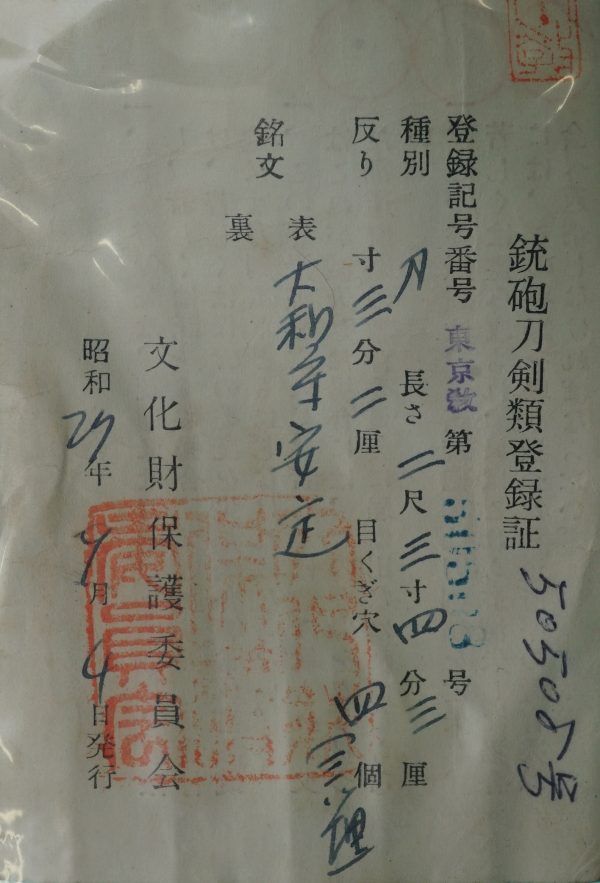 銃砲刀剣類登録証
50505号
登録記号番号 東京 第 号
種別 刀 長さ 二尺三寸四分三厘
反り 寸三分二厘 目くぎ穴 四個
銘文 表 大和守安定
裏
文化財保護委員会
昭和29年 月 4日発行